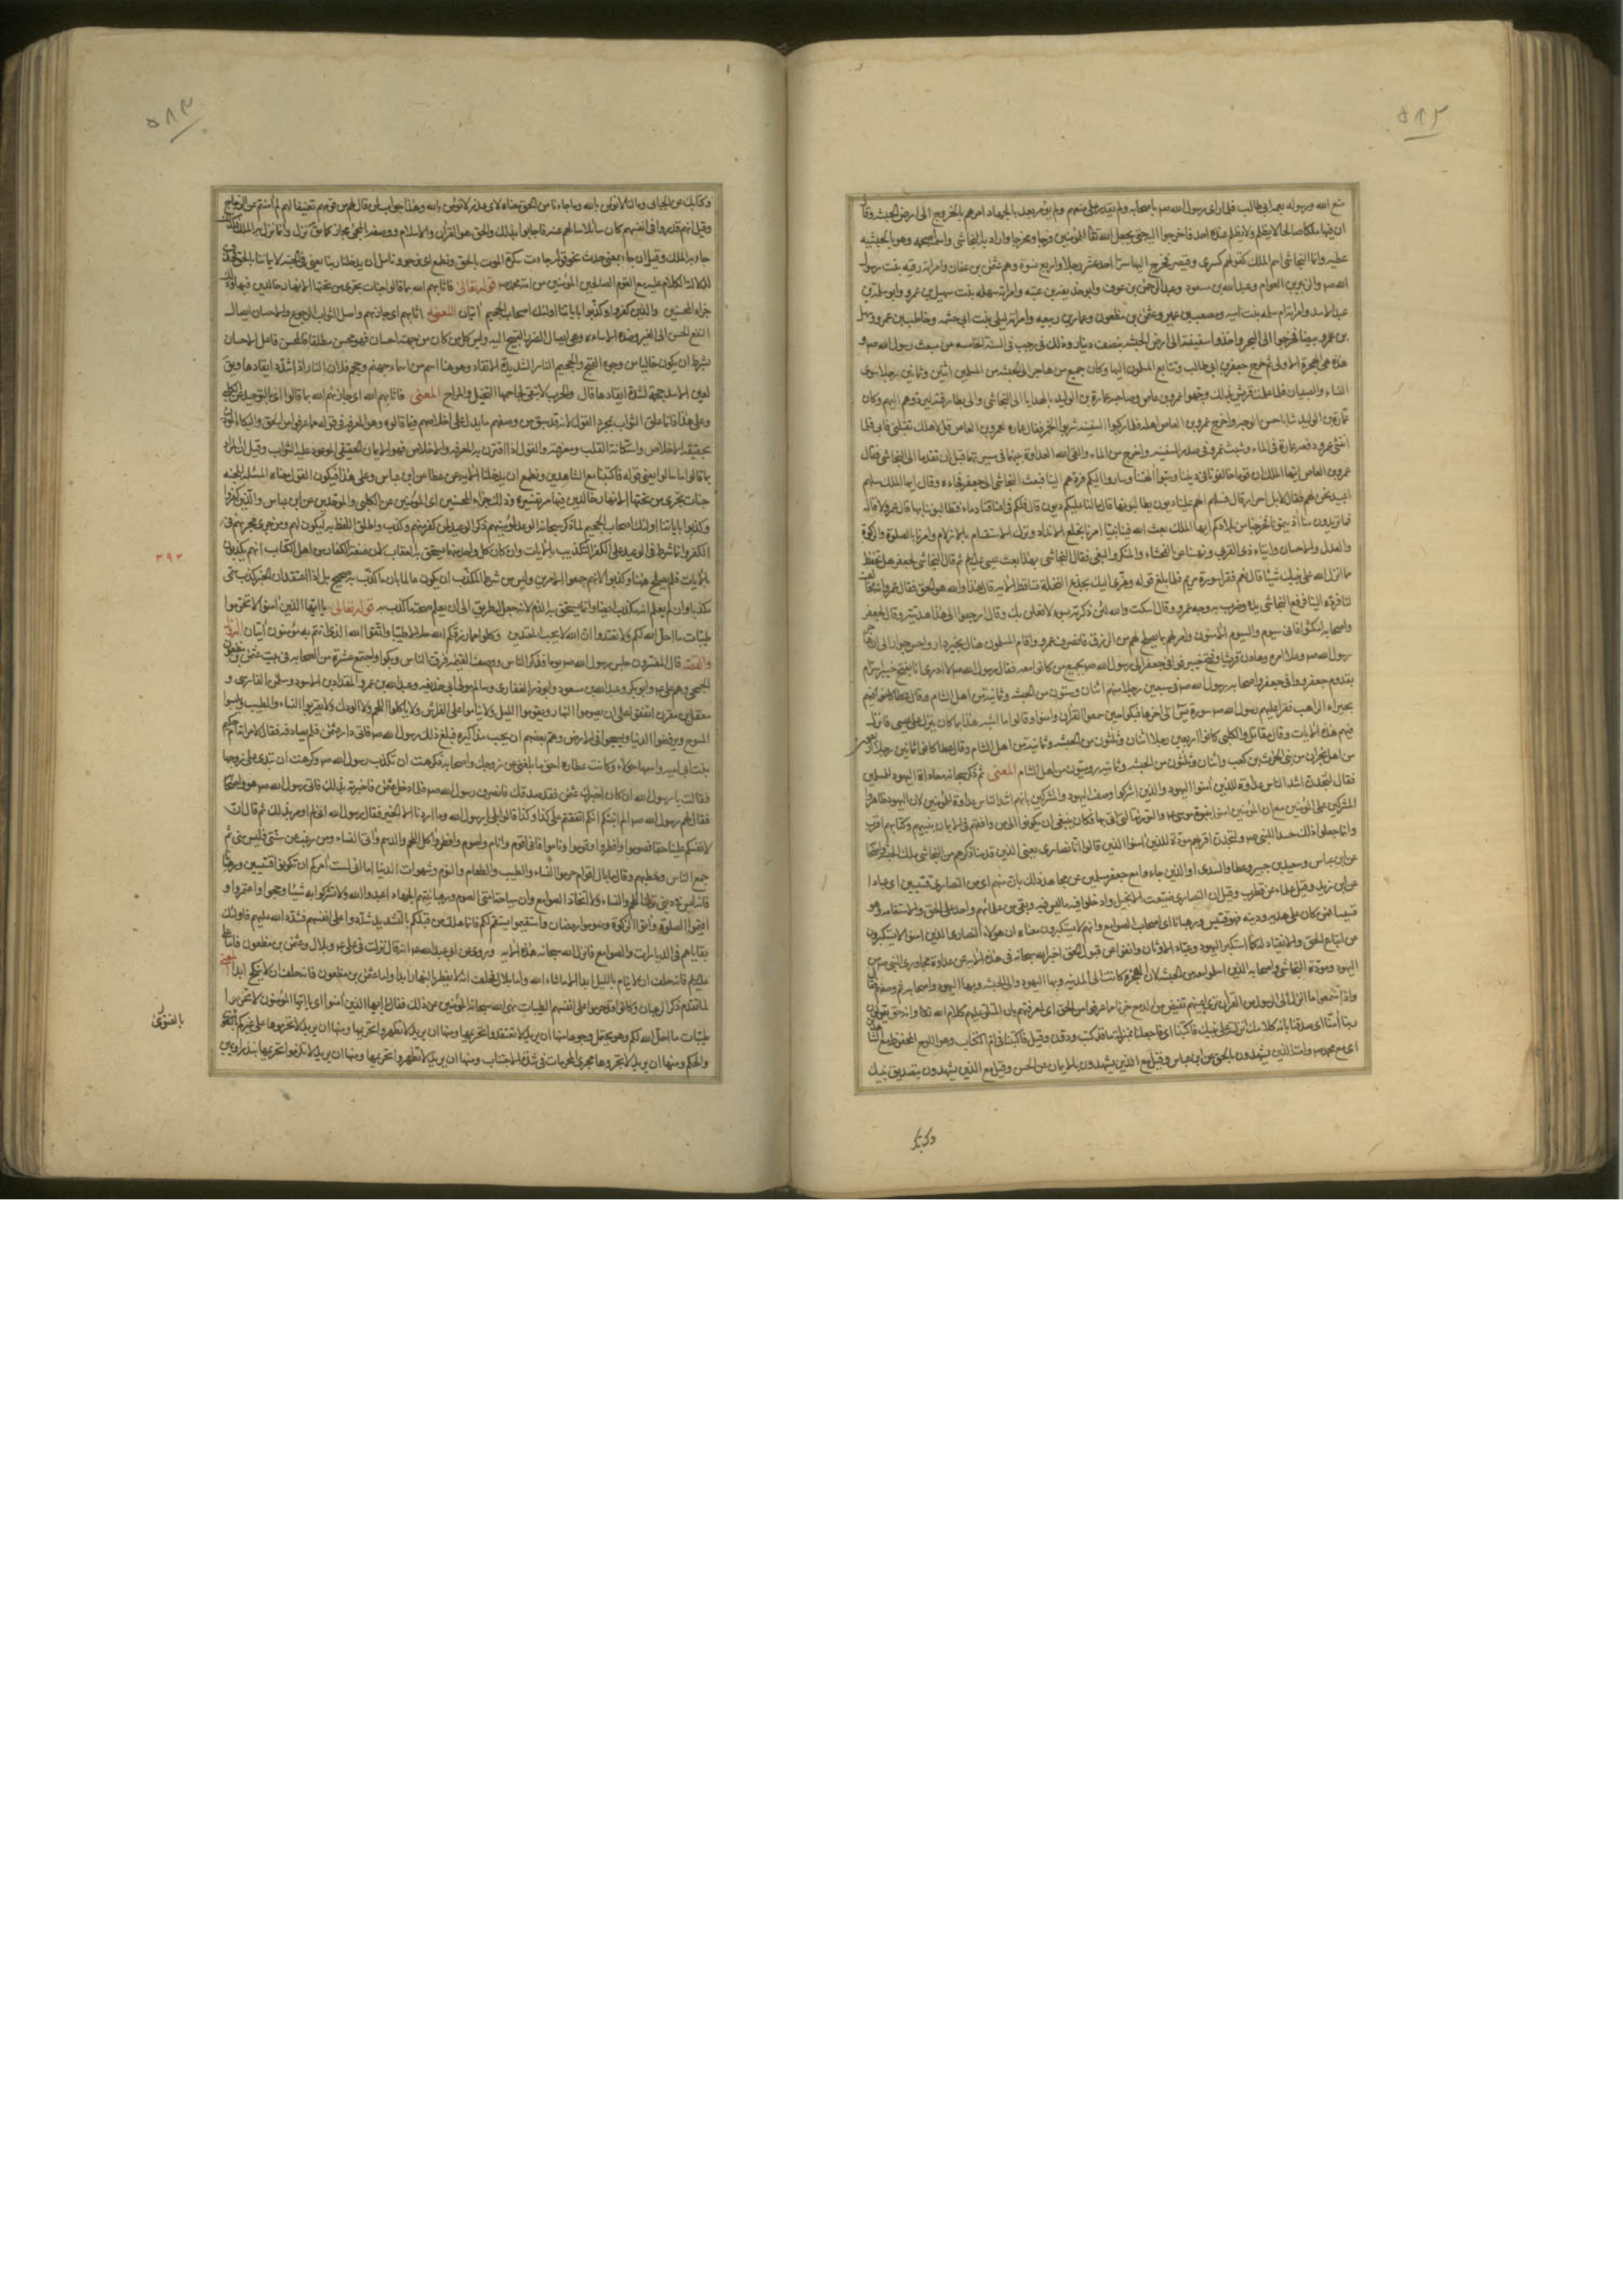 ٥٨٢
منع الله ورسوله بعمه ابي طالب فلما راى رسول الله صم ما باصحابه ولم يقدر على منعهم ولم يؤمر بعد بالجهاد امرهم بالخروج الى ارض الحبشه وقال
ان فيها ملكا صالحا لا يظلم ولا يظلم عنده احد فاخرجوا اليه حتى يجعل الله تعالى للمؤمنين فرجا ومخرجا واراد به النجاشى واسمه اصحمه وهو بالحبشيه
عطيه وانما النجاشى اسم الملك كقولهم كسرى وقيصر فخرج اليها سرّا احد عشر رجلا واربع نسوة وهم عثمن بن عفان وامراته رقيه بنت رسول
الله صم والزبير بن العوام وعبدالله بن مسعود وعبدالرحمن بن عوف وابو حذيفه بن عتبه وامراته سهله بنت سهيل بن عمرو وابو سلمة بن
عبد الاسد وامراته ام سلمه بنت اميه ومصعب بن عمير وعثمن بن مظعون وعامر بن ربيعه وامراته ليلى بنت ابى حثمه وحاطب بن عمرو وسهيل
بن بيضا فخرجوا الى البحر واخذوا سفينة الى ارض الحبشه بنصف دينار وذلك فى رجب فى السنة الخامسه من مبعث رسول الله صم و
هذه هى الهجرة الاولى ثم خرج جعفر بن ابى طالب وتتابع المسلمون اليها وكان جميع من هاجر الى الحبشه من المسلمين اثنين وثمانين رجلا سوى
النساء والصبيان فلما علمت قريش بذلك وجهوا عمرو بن عاص وصاحبه عمارة بن الوليد بالهدايا الى النجاشى والى بطارقته ليردوهم اليهم وكان
عمارة بن الوليد شابا حسن الوجه واخرج عمرو بن العاص اهله فلما ركبوا السفينه شربوا الخمر فقال عماره لعمرو بن العاص قل لاهلك تقبلنى فابى فلما
انتشى عمرو دفعه عمارة فى الماء ونشب عمرو فى صدر السفينه واخرج من الماء والقى الله العداوة بينهما فى مسيرهما قبل ان يقدما الى النجاشى فقال
عمرو بن العاص ايها الملك ان قوما خالفونا فى ديننا وسبوا آلهتنا وصاروا اليك فردهم الينا فبعث النجاشى الى جعفر فجاءه وقال ايها الملك سلهم
اعبيد نحن لهم فقال لا بل احرار قال فسلهم الهم علينا ديون يطالبوننا بها قال لا مالنا عليكم ديون قال فلكم فى اعناقنا دماء تطالبوننا بها قال عمرو لا قال
فما تريدون منا آذيتمونا فخرجنا من بلادكم ايها الملك بعث الله فينا نبيّا امرنا بخلع الانداد وترك الاستقسام بالازلام وامرنا بالصلوة والزكوة
والعدل والاحسان وايتاء ذى القربى ونهانا عن الفحشاء والمنكر والبغى فقال النجاشى بهذا بعث عيسى عليلم ثم قال النجاشى لجعفر هل تحفظ
مما انزل الله على نبيك شيئا قال نعم فقرا سورة مريم فلما بلغ قوله وهزّى اليك بجذع النخلة تساقط الايه قال هذا والله هو الحق فقال عمرو انه مخالف
لنا فرده الينا فرفع النجاشى يده وضرب به وجه عمرو وقال اسكت والله لئن ذكرته بسوء لافعلن بك وقال ارجعوا الى هذا هديته وقال لجعفر
واصحابه امكثوا فانتم سيوم والسيوم الآمنون وامر لهم بما يصلحهم من الرزق فانصرف عمرو واقام المسلمون هناك بخير دار واحسن جوار الى ان هاجر
رسول الله صم وعلا امره وهادن قريشا وفتح خيبر فوافى جعفر الى رسول الله صم بجميع من كانوا معه فقال رسول الله صم لا ادرى انا بفتح خيبر اسرّ ام
بقدوم جعفر ووافى جعفر واصحابه رسول الله صم فى سبعين رجلا منهم اثنان وستون من الحبشه وثمانية من اهل الشام
بحيراء الراهب فقرا عليهم رسول الله صم سورة يس الى اخرها فبكوا حين سمعوا القرآن وآمنوا وقالوا ما اشبه هذا بما كان ينزل على عيسى فانزل
فيهم هذه الايات وقال مقاتل والكلبى كانوا اربعين رجلا اثنان وثلثون من الحبشه وثمانية من اهل الشام وقال عطا كانوا ثمانين رجلا اربعون
من اهل نجران من بنى الحرث بن كعب واثنان وثلثون من الحبشه وثمانيه روميّون من اهل الشام المعنى ثم ذكر سبحانه معاداة اليهود للمسلمين
فقال لتجدنّ اشد الناس عداوة للذين آمنوا اليهود والذين اشركوا وصف اليهود والمشركين بانهم اشد الناس عداوة للمؤمنين لان اليهود ظاهروا
المشركين على المؤمنين مع ان المؤمنين آمنوا بنبوة موسى عم والتورية التى اتى بها فكان ينبغى ان يكونوا الى من وافقهم فى الايمان بنبيهم وكتابهم اقرب
وانما فعلوا ذلك حسدا للنبى صم ولتجدنّ اقربهم مودّة للذين آمنوا الذين قالوا انا نصارى يعنى الذين قدمنا ذكرهم من النجاشى ملك الحبشه واصحابه
عن ابن عباس وسعيد بن جبير وعطا والسدى او الذين جاءوا مع جعفر مسلمين عن مجاهد ذلك بان منهم اى من النصارى قسّيسين اى عبادا
عن ابن زيد وقيل علماء عن قطرب وقيل ان النصارى ضيعت الانجيل وادخلوا فيه ما ليس فيه وبقى من علمائهم واحد على الحق والاستقامه وهو
قسّيسا فمن كان على هديه ودينه فهو قسّيس ورهبانا اى اصحاب الصوامع وانهم لا يستكبرون معناه ان هؤلاء النصارى الذين آمنوا لا يستكبرون
عن اتباع الحق والانقياد له كما استكبر اليهود وعباد الاوثان وانفوا عن قبول الحق اخبر الله سبحانه فى هذه الايه عن عداوة مجاورى النبى صم من
اليهود ومودّة النجاشى واصحابه الذين اسلموا معه من الحبشه لان الهجرة كانت الى المدينه وبها اليهود والى الحبشه وبها النجاشى واصحابه ثم وصفهم فقال
واذا سمعوا ما انزل الى الرسول من القرآن ترى اعينهم تفيض من الدمع مما عرفوا من الحق اى لمعرفتهم بان المتلو عليهم كلام الله تعالى وانه حق يقولون
ربنا آمنّا اى صدقنا بانه كلامك انزلته على نبيك فاكتبنا اى فاجعلنا بمنزلة ما قد كتب ودوّن وقيل فاكتبنا فى ام الكتاب وهو اللوح المحفوظ مع الشاهدين
اى مع محمد صم وامته الذين يشهدون بالحق عن ابن عباس وقيل مع الذين يشهدون بالايمان عن الحسن وقيل مع الذين يشهدون بتصديق نبيك
وكتابك
٥٨٣
وكتابك عن الجبائى وما لنا لا نؤمن بالله وما جاءنا من الحق معناه لاى عذر لا نؤمن بالله وهذا جواب لمن قال لهم من قومهم تعنيفا لهم لم آمنتم عن الزجاج
وقيل انهم قدروا فى انفسهم كان سائلا سالهم عنه فاجابوا بذلك والحق هو القرآن والاسلام ووصفه بالمجئ مجاز كما يقال نزل وانما نزل به الملك
جاء به الملك وقيل ان جاء بمعنى حدث نحو قوله جاءت سكرة الموت بالحق ونطمع اى ونرجو ونامل ان يدخلنا ربنا يعنى فى الجنه لايماننا بالحق
لدلالة الكلام عليه مع القوم الصالحين المؤمنين من امة محمد صم قوله تعالى فاثابهم الله بما قالوا جنات تجرى من تحتها الانهار خالدين فيها وذلك
جزاء المحسنين والذين كفروا وكذّبوا باياتنا اولئك اصحاب الجحيم آيتان اللغه اثابهم اى جازاهم واصل الثواب الرجوع والاحسان ايصال
النفع الحسن الى الغير وضده الاساءه وهى ايصال الضرر القبيح اليه وليس كل من كان من جهته احسان فهو محسن مطلقا فالمحسن فاعل الاحسان
بشرط ان يكون خاليا من وجوه القبح والجحيم النار الشديدة الاتقاد وهو هنا اسم من اسماء جهنم وجحم فلان النار اذا شدّد ايقادها ويق
لعين الاسد جحمة لشدة ايقادها قال والحرب لا يبقى لجاحمها التخيل والمراح المعنى فاثابهم الله اى جازاهم الله بما قالوا اى بالتوحيد عن الكلبى
وعلى هذا فانما علق الثواب بمجرد القول لانه قد سبق من وصفهم ما يدل على اخلاصهم فيما قالوه وهو المعرفه فى قوله مما عرفوا من الحق والبكاء المؤذن
بحقيقة الاخلاص واستكانة القلب ومعرفته والقول اذا اقترن به المعرفه والاخلاص فهو الايمان الحقيقى الموعود عليه الثواب وقيل ان المراد
بما قالوا ما سالوا يعنى قوله فاكتبنا مع الشاهدين ونطمع ان يدخلنا الايه عن عطا عن ابن عباس وعلى هذا فيكون القول معناه المسئله للجنه
جنات تجرى من تحتها الانهار خالدين فيها مر تفسيره وذلك جزاء المحسنين اى المؤمنين عن الكلبى والموحدين عن ابن عباس والذين كفروا
وكذبوا باياتنا اولئك اصحاب الجحيم لما ذكر سبحانه الوعد لمؤمنيهم ذكر الوعيد لمن كفر منهم وكذب واطلق اللفظ به ليكون لهم ولمن جرى مجراهم فى
الكفر وانما شرط فى الوعيد على الكفر التكذيب بالايات وان كان كل واحد منهما يستحق به العقاب لان صفة الكفار من اهل الكتاب انهم يكذبون
بالايات فلم يصلح ههنا وكذبوا لانهم جمعوا الامرين وليس من شرط المكذّب ان يكون عالما بان ما كذّب به صحيح بل اذا اعتقد ان الخبر كذب سمّى
مكذبا وان لم يعلم انه كذب وانما يستحق به الذم لانه جعل له طريق الى ان يعلم صحة ما كذب به قوله تعالى يا ايها الذين آمنوا لا تحرموا
طيبات ما احل الله لكم ولا تعتدوا ان الله لا يحب المعتدين وكلوا مما رزقكم الله حلالا طيّبا واتقوا الله الذى انتم به مؤمنون آيتان النزول
والقصّه قال المفسرون جلس رسول الله صم يوما فذكر الناس ووصف القيمه فرق الناس وبكوا واجتمع عشرة من الصحابه فى بيت عثمن بن مظعون
الجمحى وهم على عم وابو بكر وعبدالله بن مسعود وابو ذر الغفارى وسالم مولى ابى حذيفه وعبدالله بن عمر والمقداد بن الاسود وسلمن الفارسى و
معقل بن مقرن اتفقوا على ان يصوموا النهار ويقوموا الليل ولا يناموا على الفرش ولا ياكلوا اللحم ولا الودك ولا يقربوا النساء والطيب ويلبسوا
المسوح ويرفضوا الدنيا ويسيحوا فى الارض وهمّ بعضهم ان يجب مذاكيره فبلغ ذلك رسول الله صم فاتى دار عثمن فلم يصادفه فقال لامراته ام حكيم
بنت ابى اميه واسمها حولاء وكانت عطاره احق ما بلغنى عن زوجك واصحابه فكرهت ان تكذب رسول الله صم وكرهت ان تبدى على زوجها
فقالت يا رسول الله ان كان اخبرك عثمن فقد صدقك فانصرف رسول الله صم فلما دخل عثمن فاخبرته بذلك فاتى رسول الله صم هو واصحابه
فقال لهم رسول الله صم الم انبئكم انكم اتفقتم على كذا وكذا قالوا بلى يا رسول الله وما اردنا الا الخير فقال رسول الله انى لم اومر بذلك ثم قال ان
لانفسكم عليكم حقا فصوموا وافطروا وقوموا وناموا فانى اقوم وانام واصوم وافطر وآكل اللحم والدسم وآتى النساء ومن رغب عن سنّتى فليس منى ثم
جمع الناس وخطبهم وقال ما بال اقوام حرموا النساء والطيب والطعام والنوم وشهوات الدنيا اما انى لست آمركم ان تكونوا قسيسين ورهبانا
فانه ليس فى دينى ترك اللحم والنساء ولا اتخاذ الصوامع وان سياحة امتى الصوم ورهبانيتهم الجهاد اعبدوا الله ولا تشركوا به شيئا وحجوا واعتمروا و
اقيموا الصلوة وآتوا الزكوة وصوموا رمضان واستقيموا يستقم لكم فانما هلك من قبلكم بالتشديد شدّدوا على انفسهم فشدّد الله عليهم فاولئك
بقاياهم فى الديارات والصوامع فانزل الله سبحانه هذه الايه وروى عن ابى عبدالله عم انه قال نزلت فى على عم وبلال وعثمن بن مظعون فاما على
عليلم فانه حلف ان لا ينام بالليل ابدا الا ما شاء الله واما بلال فحلف ان لا يفطر بالنهار ابدا واما عثمن بن مظعون فانه حلف ان لا ينكح ابدا المعنى
لما تقدم ذكر الرهبان وكانوا قد حرموا على انفسهم الطيبات نهى الله سبحانه المؤمنين عن ذلك فقال يا ايها الذين آمنوا اى يا ايها المؤمنون لا تحرموا
طيبات ما احل الله لكم وهو يحتمل وجوها منها ان يريد لا تعتقدوا تحريمها ومنها ان يريد لا تظهروا تحريمها ومنها ان يريد لا تحرموها على غيركم بالفتوى
والحكم ومنها ان يريد لا تجروها مجرى المحرمات فى شدة الاجتناب ومنها ان يريد لا تلتزموا تحريمها بنذر او يمين
٣٩٣
بالفتوى